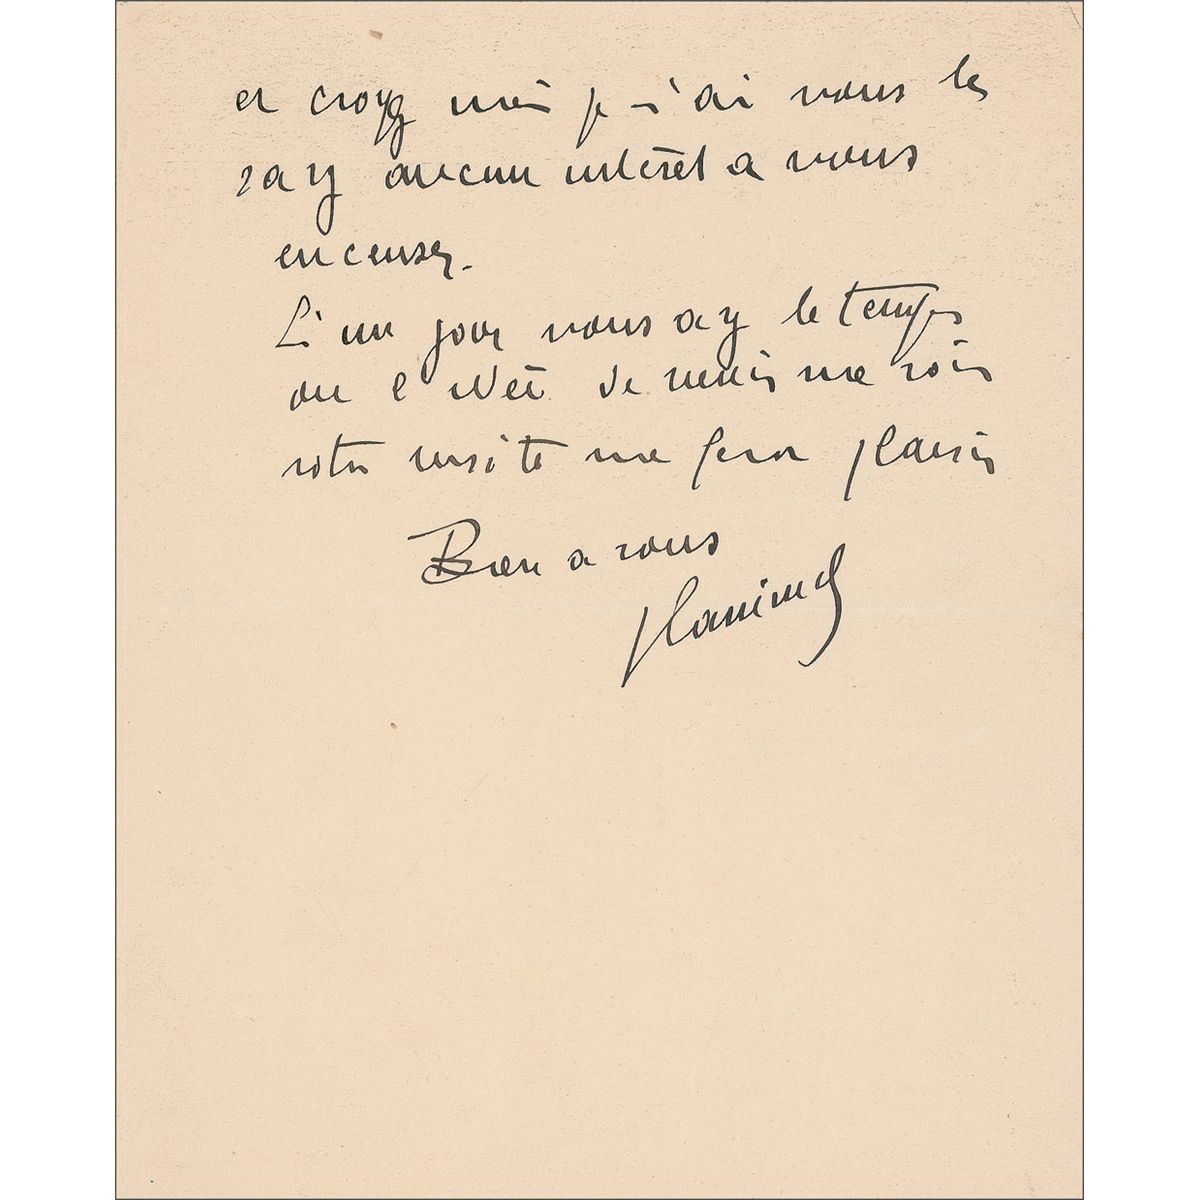 et croyez moi je n'ai vous le
savez aucun intérêt a vous
encenser.
Si un jour vous avez le temps
ou l'idée de venir me voir
votre visite me fera plaisir
Bien a vous
Vlaminck